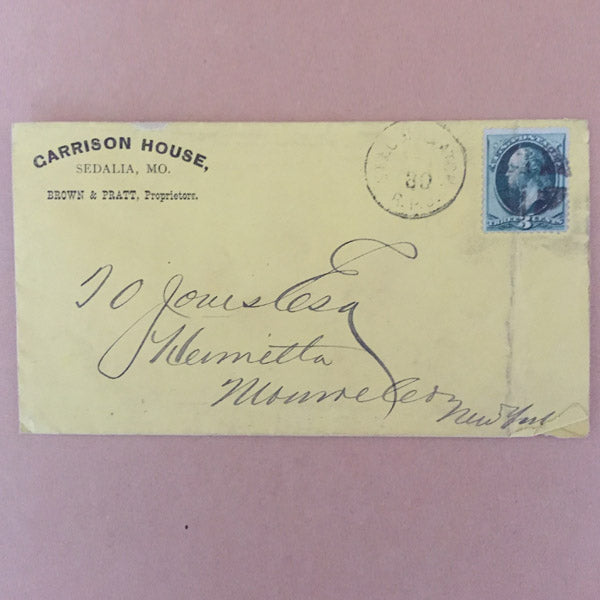 GARRISON HOUSE,
SEDALIA, MO.
BROWN & PRATT, Proprietors.
80
R.P.O.
THREE 3 CENTS
T O Jones Esq
Henrietta
Monroe Co
New York